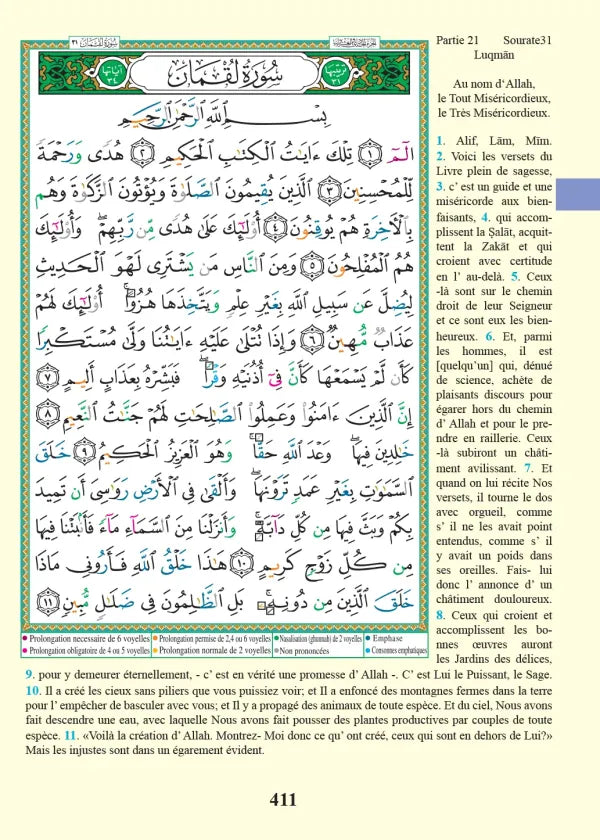 سُورَةُ لُقْمَانَ ٣١
الجزء الحادي والعشرون
Partie 21 Sourate31
Luqmān
ترتيبها ٣١
سُورَةُ لُقْمَانَ
آياتها ٣٤
بِسْمِ ٱللَّهِ ٱلرَّحْمَٰنِ ٱلرَّحِيمِ
الٓمٓ ۝١ تِلْكَ ءَايَٰتُ ٱلْكِتَٰبِ ٱلْحَكِيمِ ۝٢ هُدًى وَرَحْمَةً
لِّلْمُحْسِنِينَ ۝٣ ٱلَّذِينَ يُقِيمُونَ ٱلصَّلَوٰةَ وَيُؤْتُونَ ٱلزَّكَوٰةَ وَهُم
بِٱلْءَاخِرَةِ هُمْ يُوقِنُونَ ۝٤ أُو۟لَٰٓئِكَ عَلَىٰ هُدًى مِّن رَّبِّهِمْ ۖ وَأُو۟لَٰٓئِكَ
هُمُ ٱلْمُفْلِحُونَ ۝٥ وَمِنَ ٱلنَّاسِ مَن يَشْتَرِى لَهْوَ ٱلْحَدِيثِ
لِيُضِلَّ عَن سَبِيلِ ٱللَّهِ بِغَيْرِ عِلْمٍ وَيَتَّخِذَهَا هُزُوًا ۚ أُو۟لَٰٓئِكَ لَهُمْ
عَذَابٌ مُّهِينٌ ۝٦ وَإِذَا تُتْلَىٰ عَلَيْهِ ءَايَٰتُنَا وَلَّىٰ مُسْتَكْبِرًا
كَأَن لَّمْ يَسْمَعْهَا كَأَنَّ فِىٓ أُذُنَيْهِ وَقْرًا ۖ فَبَشِّرْهُ بِعَذَابٍ أَلِيمٍ ۝٧
إِنَّ ٱلَّذِينَ ءَامَنُوا۟ وَعَمِلُوا۟ ٱلصَّٰلِحَٰتِ لَهُمْ جَنَّٰتُ ٱلنَّعِيمِ ۝٨
خَٰلِدِينَ فِيهَا ۖ وَعْدَ ٱللَّهِ حَقًّا ۚ وَهُوَ ٱلْعَزِيزُ ٱلْحَكِيمُ ۝٩ خَلَقَ
ٱلسَّمَٰوَٰتِ بِغَيْرِ عَمَدٍ تَرَوْنَهَا ۖ وَأَلْقَىٰ فِى ٱلْأَرْضِ رَوَٰسِىَ أَن تَمِيدَ
بِكُمْ وَبَثَّ فِيهَا مِن كُلِّ دَآبَّةٍ ۚ وَأَنزَلْنَا مِنَ ٱلسَّمَآءِ مَآءً فَأَنۢبَتْنَا فِيهَا
مِن كُلِّ زَوْجٍ كَرِيمٍ ۝١٠ هَٰذَا خَلْقُ ٱللَّهِ فَأَرُونِى مَاذَا
خَلَقَ ٱلَّذِينَ مِن دُونِهِۦ ۚ بَلِ ٱلظَّٰلِمُونَ فِى ضَلَٰلٍ مُّبِينٍ ۝١١
Prolongation necessaire de 6 voyelles Prolongation permise de 2,4 ou 6 voyelles Nasalisation (ghunnah) de 2 voyelles Emphase
Prolongation obligatoire de 4 ou 5 voyelles Prolongation normale de 2 voyelles Non prononcées Consonnes emphatiques
Au nom d‘Allah,
le Tout Miséricordieux,
le Très Miséricordieux.
1. Alif, Lām, Mīm.
2. Voici les versets du
Livre plein de sagesse,
3. c’ est un guide et une
miséricorde aux bien-
faisants, 4. qui accom-
plissent la Ṣalāt, acquit-
tent la Zakāt et qui
croient avec certitude
en l’ au-delà. 5. Ceux
-là sont sur le chemin
droit de leur Seigneur
et ce sont eux les bien-
heureux. 6. Et, parmi
les hommes, il est
[quelqu’un] qui, dénué
de science, achète de
plaisants discours pour
égarer hors du chemin
d’ Allah et pour le pre-
ndre en raillerie. Ceux
-là subiront un châti-
ment avilissant. 7. Et
quand on lui récite Nos
versets, il tourne le dos
avec orgueil, comme
s’ il ne les avait point
entendus, comme s’ il
y avait un poids dans
ses oreilles. Fais- lui
donc l’ annonce d’ un
châtiment douloureux.
8. Ceux qui croient et
accomplissent les bo-
nnes œuvres auront
les Jardins des délices,
9. pour y demeurer éternellement, - c’ est en vérité une promesse d’ Allah -. C’ est Lui le Puissant, le Sage.
10. Il a créé les cieux sans piliers que vous puissiez voir; et Il a enfoncé des montagnes fermes dans la terre
pour l’ empêcher de basculer avec vous; et Il y a propagé des animaux de toute espèce. Et du ciel, Nous avons
fait descendre une eau, avec laquelle Nous avons fait pousser des plantes productives par couples de toute
espèce. 11. «Voilà la création d’ Allah. Montrez- Moi donc ce qu’ ont créé, ceux qui sont en dehors de Lui?»
Mais les injustes sont dans un égarement évident.
411